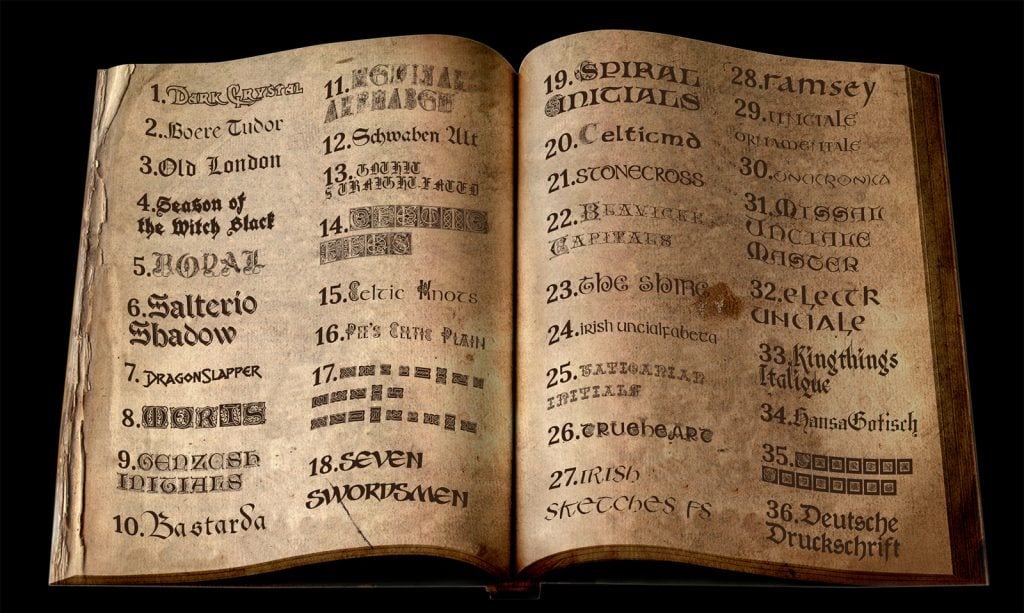 1.Dark Crystal
2.Boere Tudor
3.Old London
4.Season of
the Witch Black
5.ROYAL
6.Salterio
Shadow
7.DRAGONSLAPPER
8.MORTS
9.GENZESH
INITIALS
10.Bastarda
11.
12.Schwaben Alt
13.GOTHIC
14.
15.Celtic Knots
16.Pee's Celtic Plain
17.
18.SEVEN
SWORDSMEN
19.SPIRAL
INITIALS
20.Celticmd
21.STONECROSS
22.
CAPITALS
23.THE SHIRE
24.irish uncialfabeta
25.
INITIALS
26.TRUEHEART
27.IRISH
SKETCHES FS
28.ramsey
29.UNCIALE
ORNAMENTALE
30.
31.MISSAL
UNCIALE
MASTER
32.eLECTR
UNCIALE
33.Kingthings
Italique
34.HansaGotisch
35.
36.Deutsche
Druckschrift